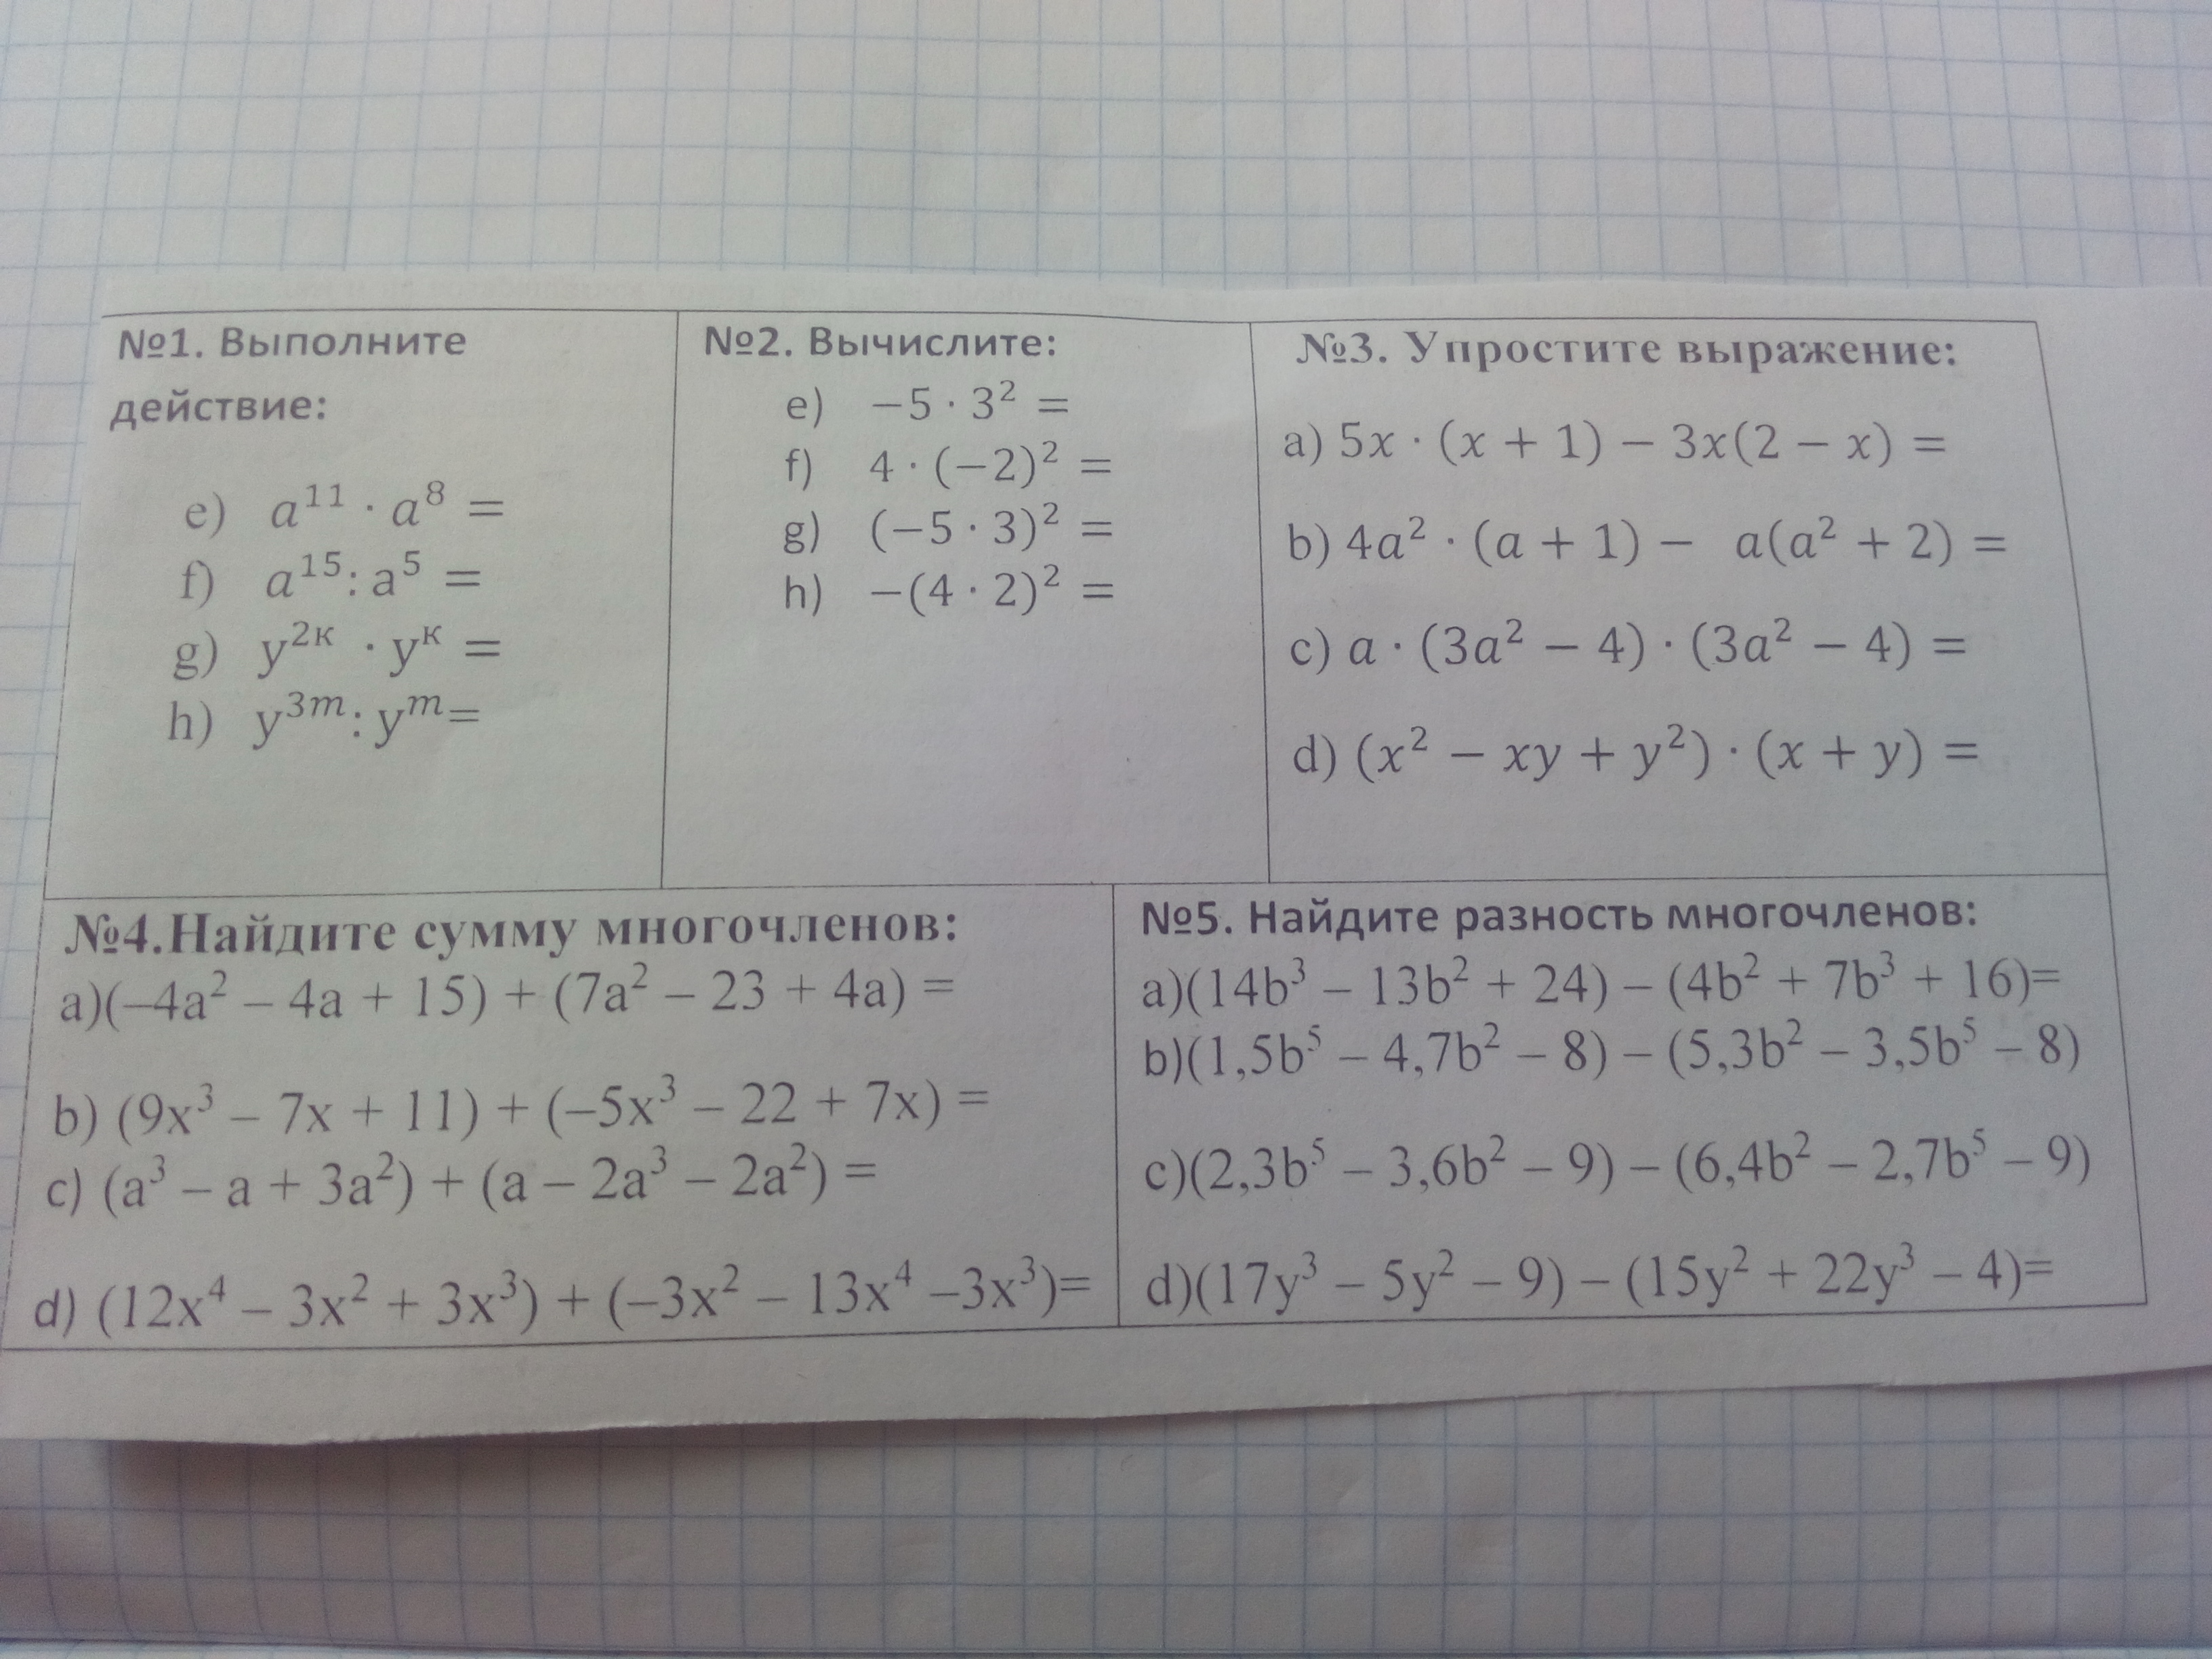 №1. Выполните
действие:
e) a¹¹ · a⁸ =
f) a¹⁵: a⁵ =
g) y²ᴷ · yᴷ =
h) y³ᵐ: yᵐ=
№2. Вычислите:
e) −5 · 3² =
f) 4 · (−2)² =
g) (−5 · 3)² =
h) −(4 · 2)² =
№3. Упростите выражение:
a) 5x · (x + 1) − 3x(2 − x) =
b) 4a² · (a + 1) − a(a² + 2) =
c) a · (3a² − 4) · (3a² − 4) =
d) (x² − xy + y²) · (x + y) =
№4.Найдите сумму многочленов:
a)(–4a² – 4a + 15) + (7a² – 23 + 4a) =
b) (9x³ – 7x + 11) + (–5x³ – 22 + 7x) =
c) (a³ – a + 3a²) + (a – 2a³ – 2a²) =
d) (12x⁴ – 3x² + 3x³) + (–3x² – 13x⁴ –3x³)=
№5. Найдите разность многочленов:
a)(14b³ – 13b² + 24) – (4b² + 7b³ + 16)=
b)(1,5b⁵ – 4,7b² – 8) – (5,3b² – 3,5b⁵ – 8)
c)(2,3b⁵ – 3,6b² – 9) – (6,4b² – 2,7b⁵ – 9)
d)(17y³ – 5y² – 9) – (15y² + 22y³ – 4)=